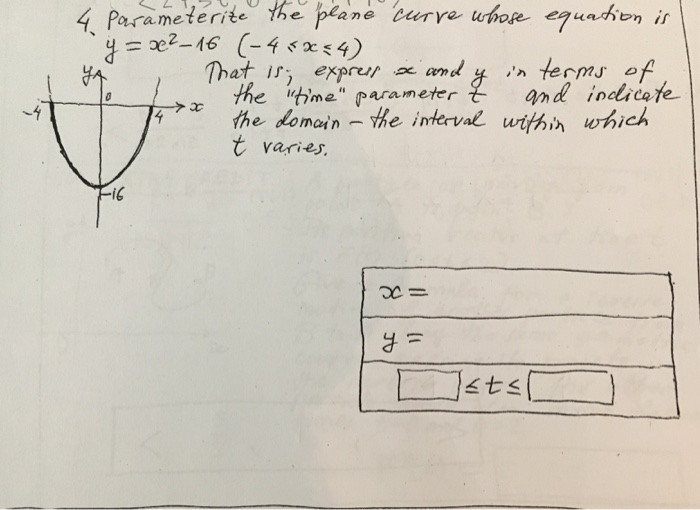 4. Parameterite the plane curve whose equation is
y = x²-16 (-4 ≤ x ≤ 4)
That is; express x and y in terms of
the "time" parameter t and indicate
the domain - the interval within which
t varies.
y
0
-4
4
x
-16
x =
y =
≤ t ≤